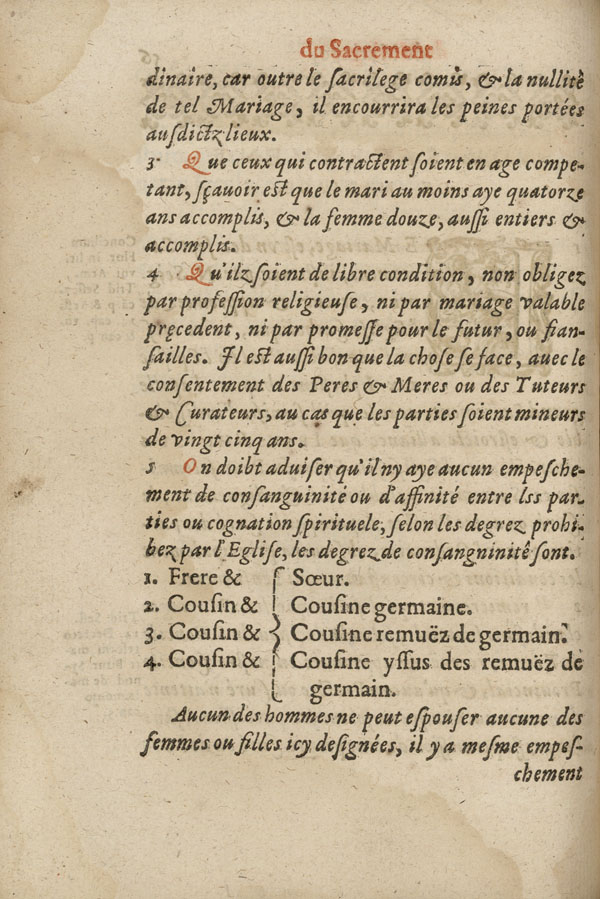 du Sacrement
dinaire, car outre le sacrilege comis, & la nullitè
de tel Mariage, il encourrira les peines portées
ausdictz lieux.
3 Que ceux qui contractent soient en age compe-
tant, sçauoir est que le mari au moins aye quatorze
ans accomplis, & la femme douze, aussi entiers &
accomplis.
4 Qu'ilz soient de libre condition, non obligez
par profession religieuse, ni par mariage valable
pręcedent, ni par promesse pour le futur, ou fian-
sailles. Il est aussi bon que la chose se face, auec le
consentement des Peres & Meres ou des Tuteurs
& Curateurs, au cas que les parties soient mineurs
de vingt cinq ans.
5 On doibt aduiser qu'il ny aye aucun empesche-
ment de consanguinité ou d'affinité entre lss par
ties ou cognation spirituele, selon les degrez prohi-
bez par l'Eglise, les degrez de consangninitê sont.
1. Frere & Sœur.
2. Cousin & Cousine germaine.
3. Cousin & Cousine remuëz de germain.
4. Cousin & Cousine yssus des remuëz de
germain.
Aucun des hommes ne peut espouser aucune des
femmes ou filles icy designées, il y a mesme empes-
chement